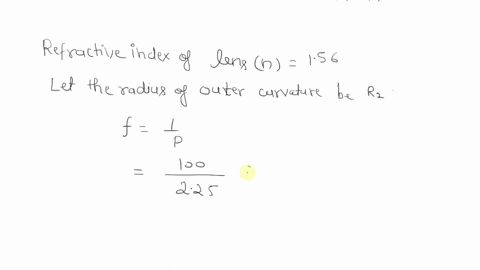 Refractive index of lens (n) = 1.56
Let the radius of outer curvature be R₂.
f = 1/P
= 100/2.25